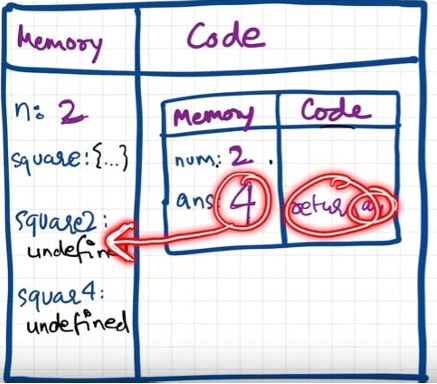 Memory
Code
n: 2
square:{...}
square2:
undefin
squar4:
undefined
Memory
Code
num: 2
ans: 4
retur